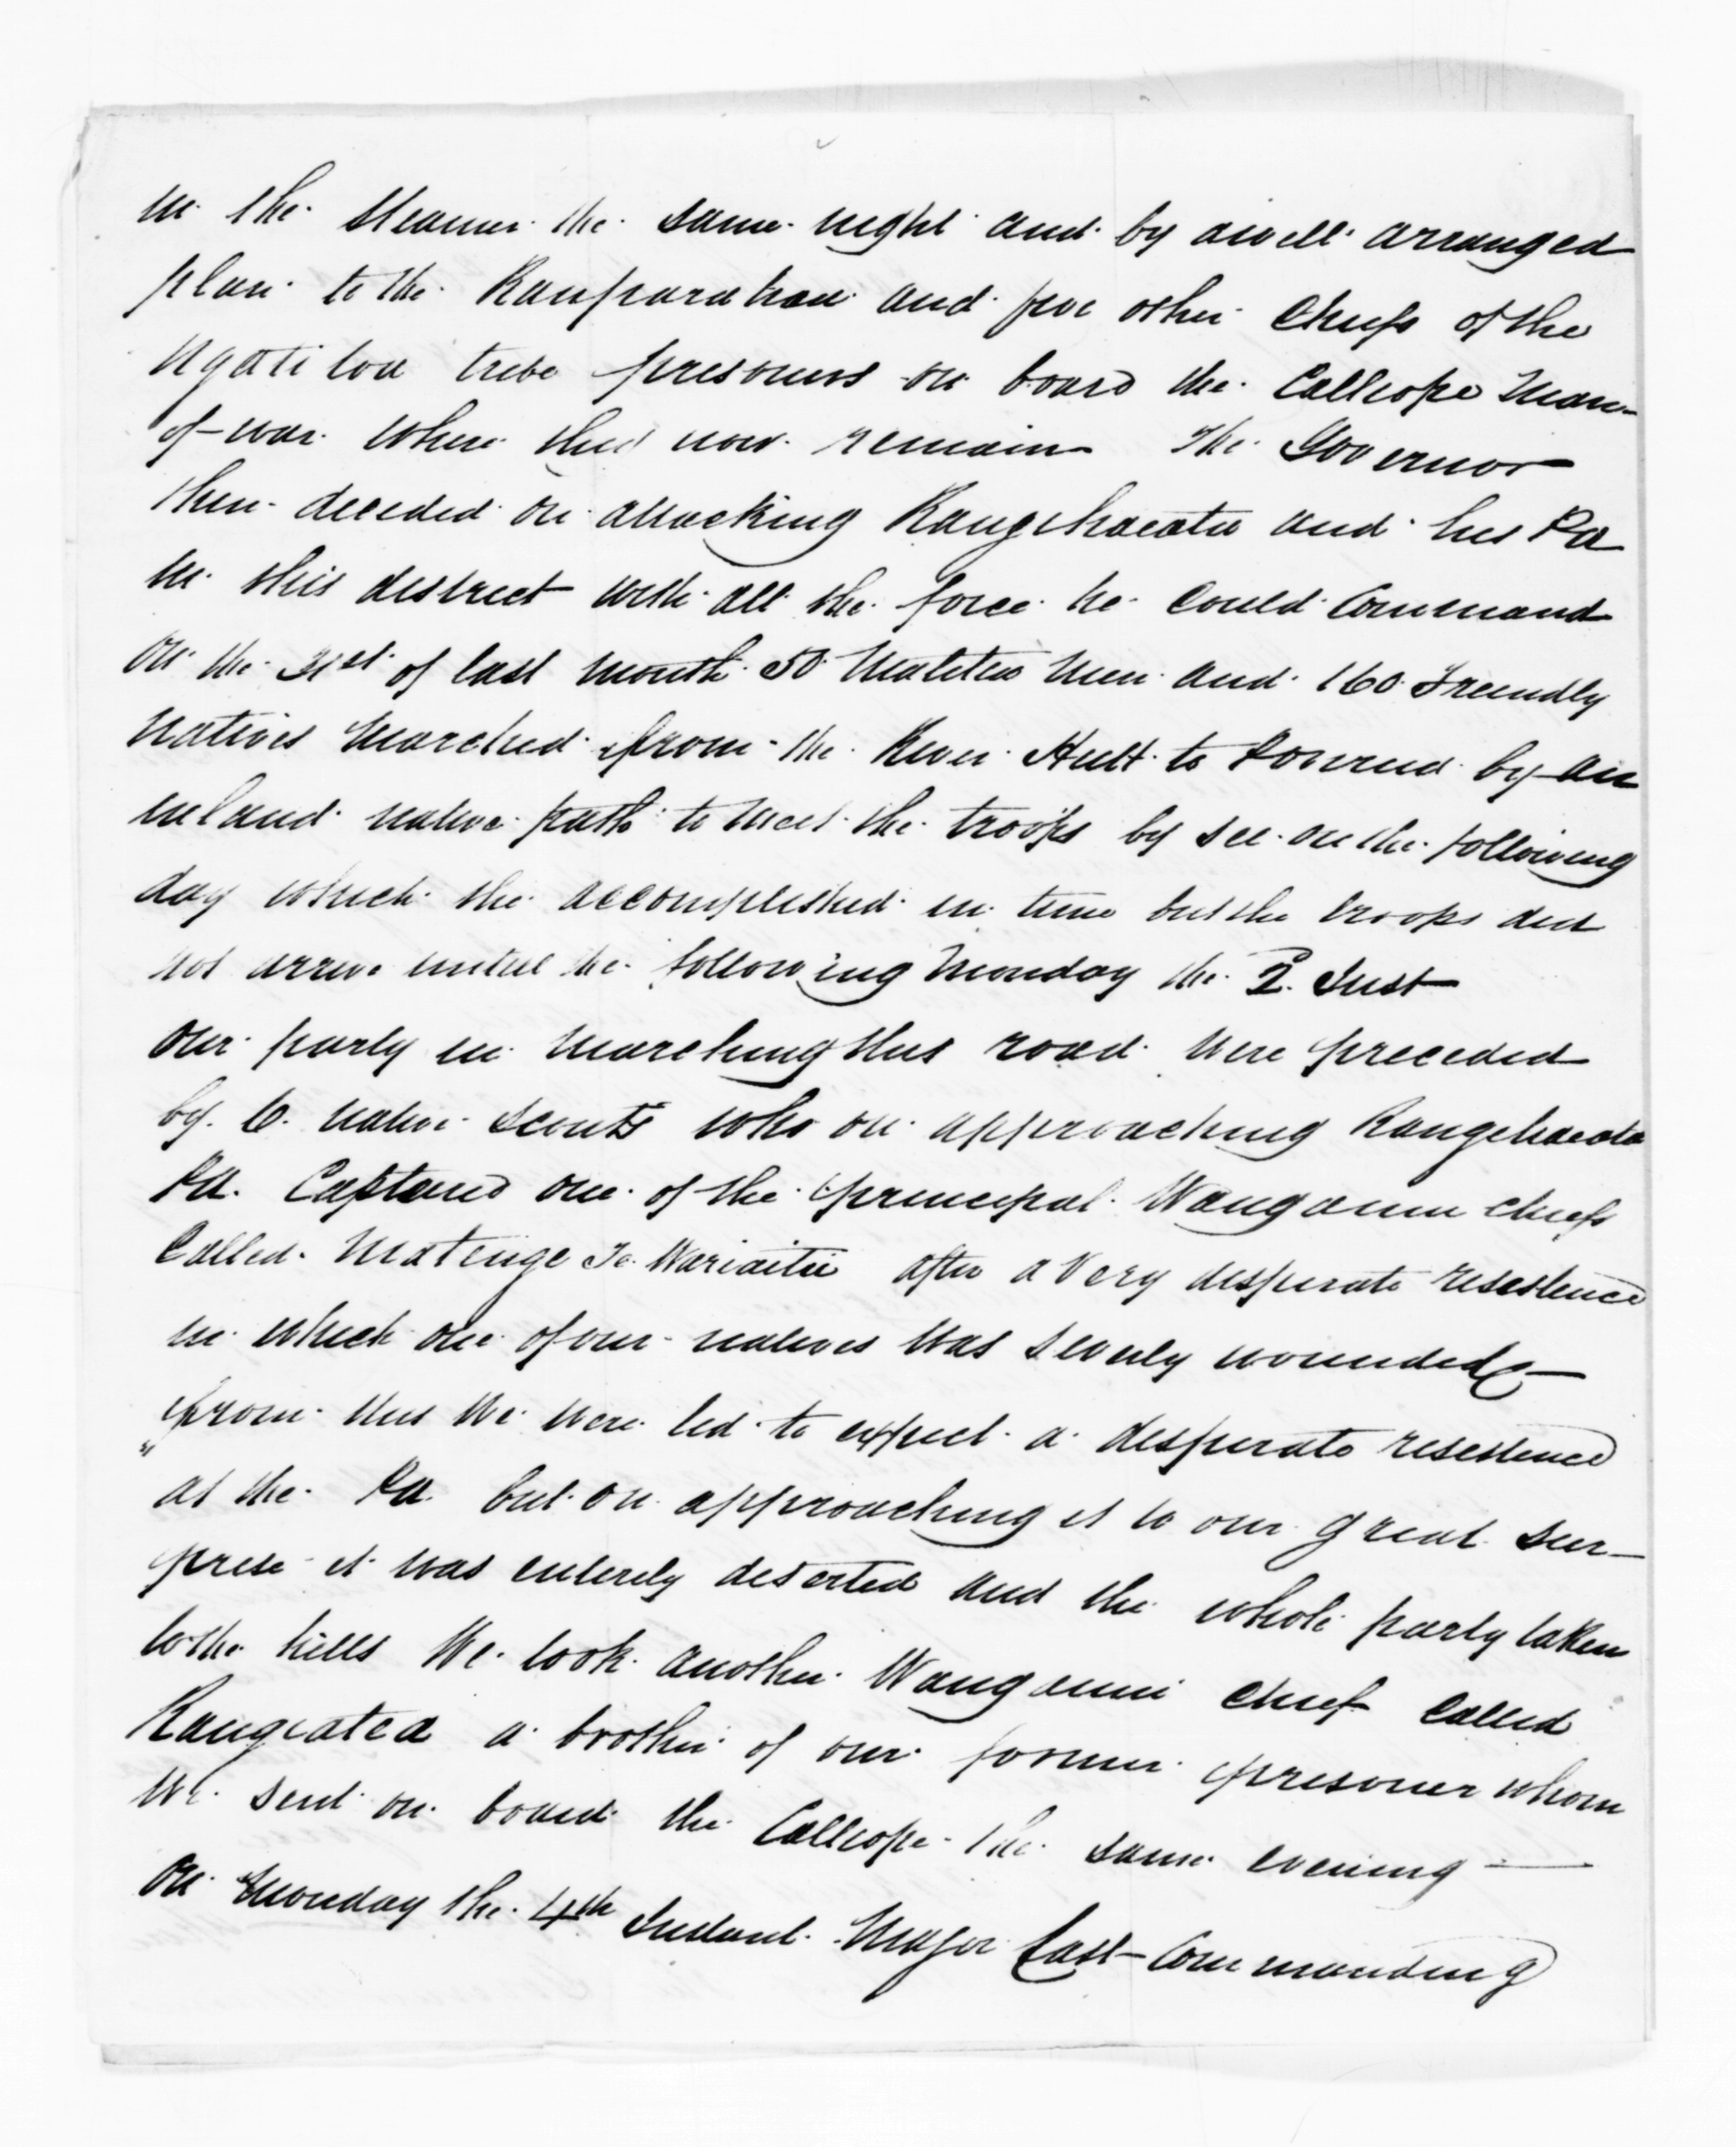 in the Steamer the same night and by a well arranged
plan to the Rauparahau and five other Chiefs of the
Ngatitoa tribe presoners on board the Calliope Man-
of-war where they now remain The Governor
then deceded on attacking Rangehaeata and his Pa
in this destrect with all the force he could Command
on the 31st of last month 50 Malitia Men and 160 Freindly
Natives Marched from the River Hutt to Porirua by an
inland native path to meet the troops by see on the following
day which the accomplished in time but the troops did
not arrive untill the following Monday the 2 Inst
our party in Marching this road were preceded
by 6 native Scouts who on approaching Rangehaeata
Pa Captured one of the principal Wanganui chiefs
Called Matenge Te Wariaitu after a very desperate resestence
in which one of our natives was severly wounded
from this We were led to expect a desperate resestence
at the Pa but on approaching it to our great sur-
prese it was enterely deserted and the whole party taken
to the hills We took another Wanganui chief Called
Rangiatea a brother of our former presoner whom
We sent on board the Calliope the same evening
On Monday the 4th Instant Major Last Commanding